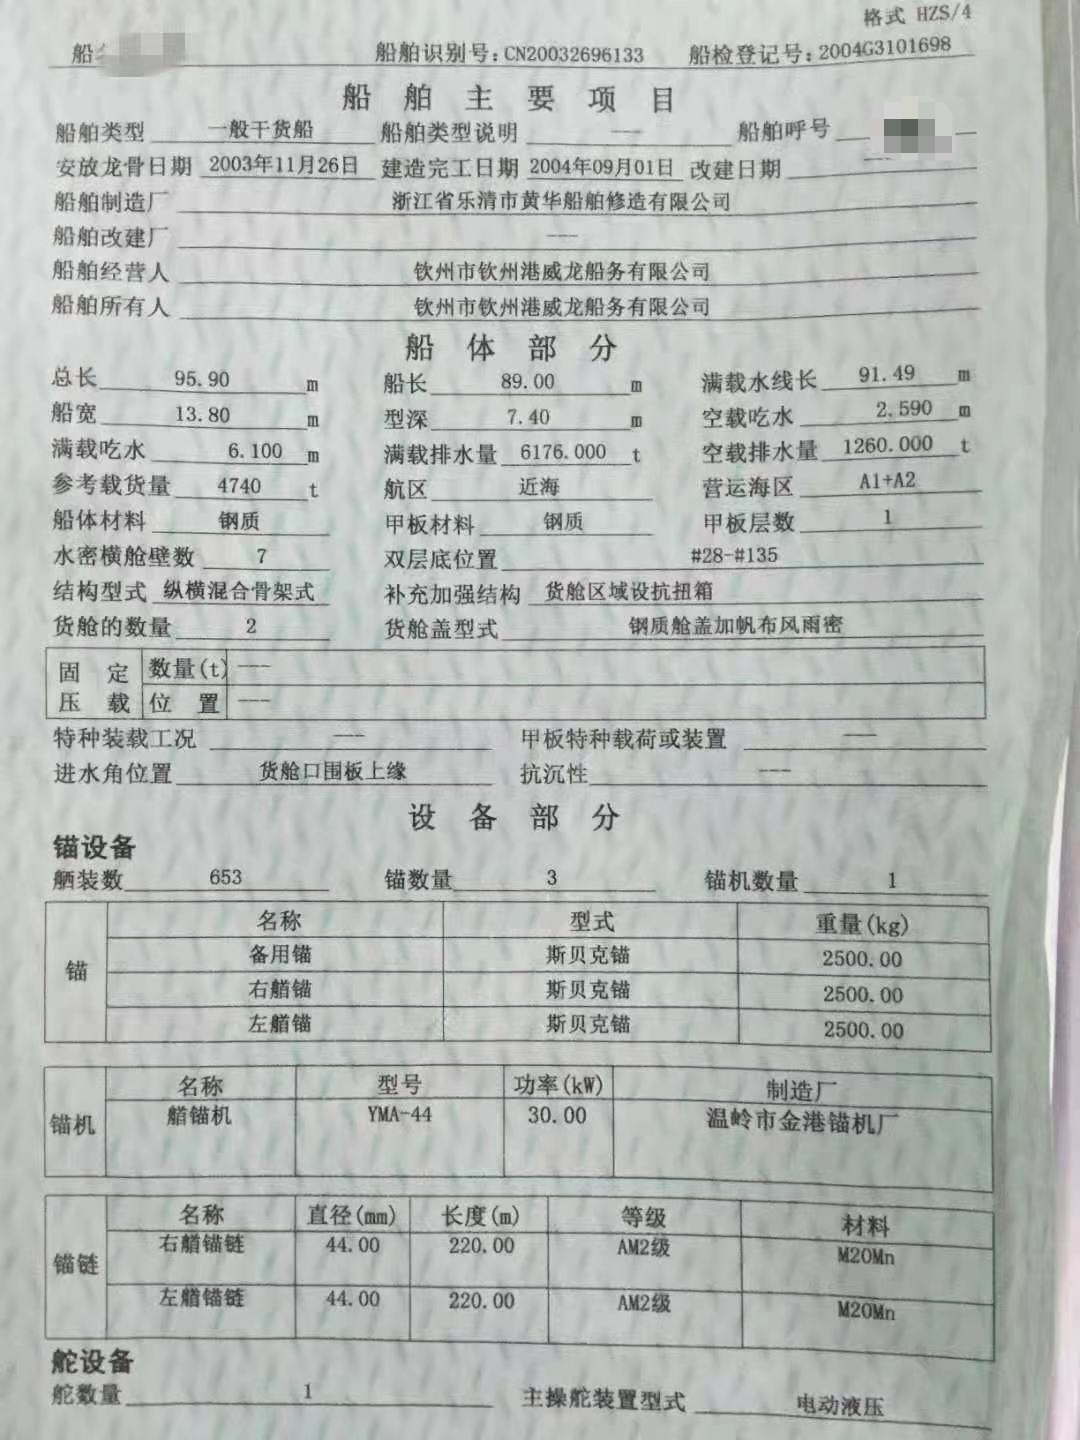 格式 HZS/4
船 船舶识别号：CN20032696133 船检登记号：2004G3101698
船舶主要项目
船舶类型 一般干货船 船舶类型说明 --- 船舶呼号
安放龙骨日期 2003年11月26日 建造完工日期 2004年09月01日 改建日期 ---
船舶制造厂 浙江省乐清市黄华船舶修造有限公司
船舶改建厂 ---
船舶经营人 钦州市钦州港威龙船务有限公司
船舶所有人 钦州市钦州港威龙船务有限公司
船体部分
总长 95.90 m 船长 89.00 m 满载水线长 91.49 m
船宽 13.80 m 型深 7.40 m 空载吃水 2.590 m
满载吃水 6.100 m 满载排水量 6176.000 t 空载排水量 1260.000 t
参考载货量 4740 t 航区 近海 营运海区 A1+A2
船体材料 钢质 甲板材料 钢质 甲板层数 1
水密横舱壁数 7 双层底位置 #28-#135
结构型式 纵横混合骨架式 补充加强结构 货舱区域设抗扭箱
货舱的数量 2 货舱盖型式 钢质舱盖加帆布风雨密
固定压载 数量(t) ---
位置 ---
特种装载工况 --- 甲板特种载荷或装置 ---
进水角位置 货舱口围板上缘 抗沉性 ---
设备部分
锚设备
舾装数 653 锚数量 3 锚机数量 1
名称 型式 重量(kg)
备用锚 斯贝克锚 2500.00
锚 右艏锚 斯贝克锚 2500.00
左艏锚 斯贝克锚 2500.00
名称 型号 功率(kW) 制造厂
锚机 艏锚机 YMA-44 30.00 温岭市金港锚机厂
名称 直径(mm) 长度(m) 等级 材料
锚链 右艏锚链 44.00 220.00 AM2级 M20Mn
左艏锚链 44.00 220.00 AM2级 M20Mn
舵设备
舵数量 1 主操舵装置型式 电动液压